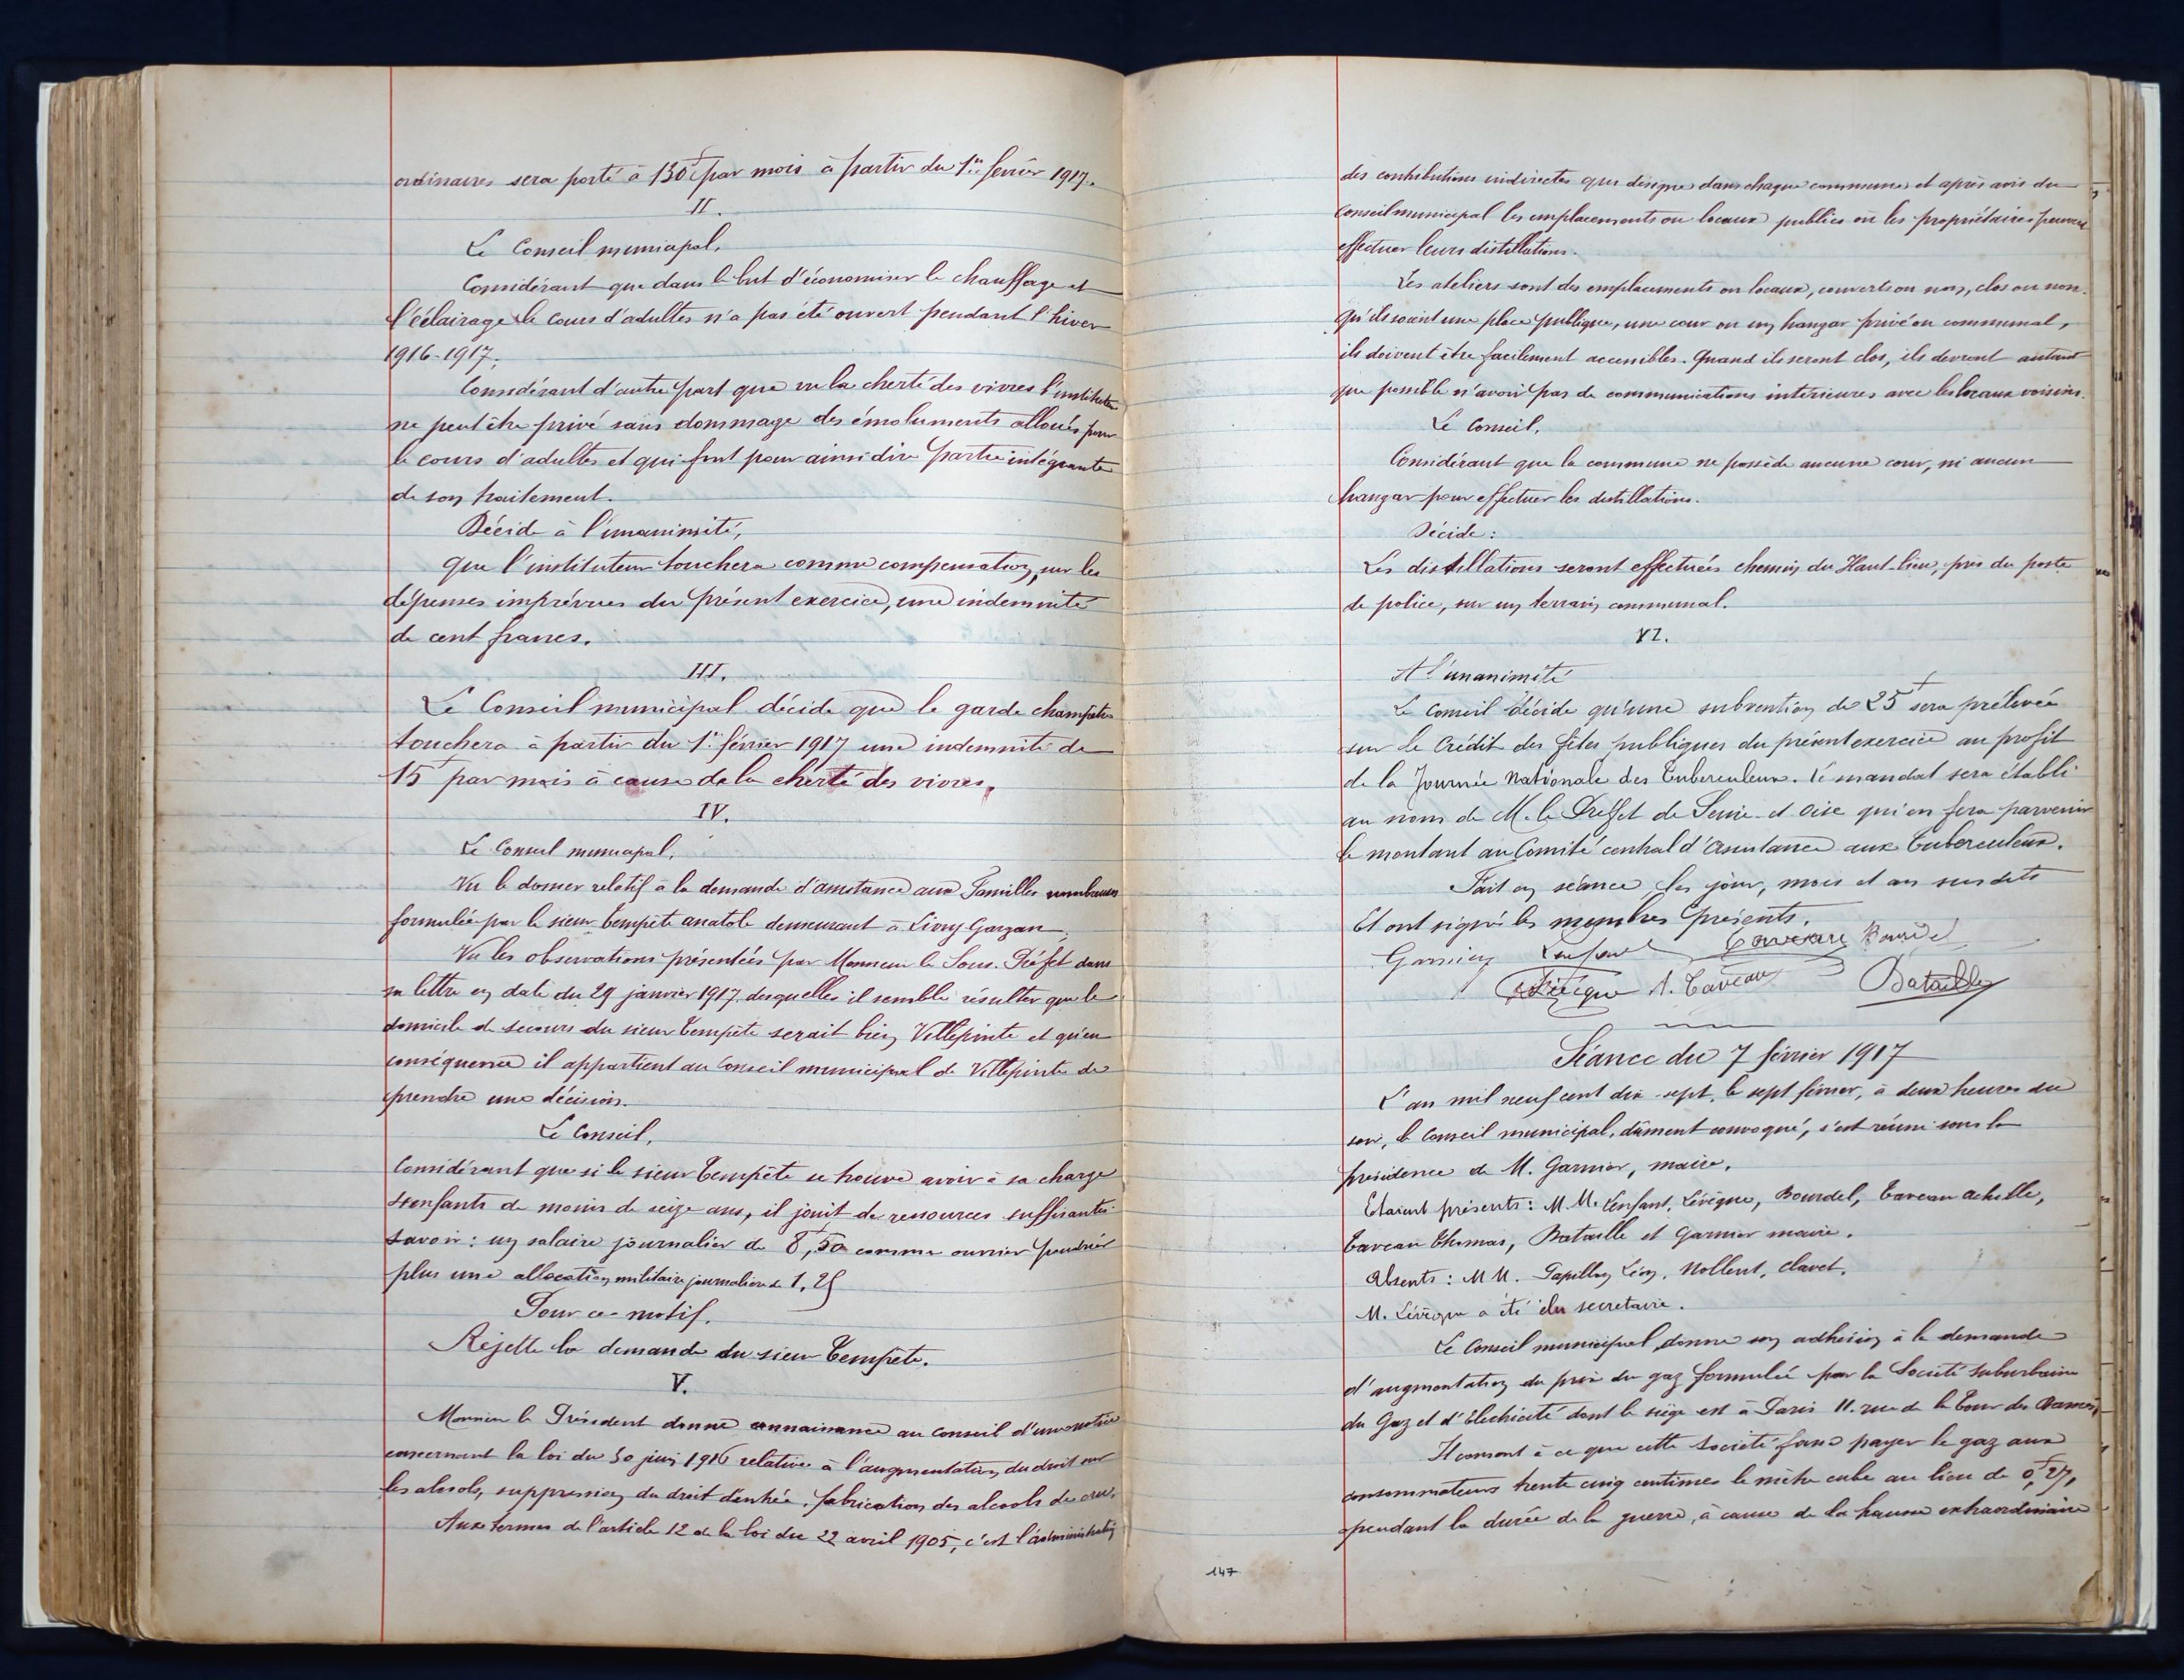 ordinaires sera porté à 130f par mois à partir du 1er février 1917.
II.
Le Conseil municipal,
Considérant que dans le but d'économiser le chauffage et
l'éclairage le cours d'adultes n'a pas été ouvert pendant l'hiver
1916-1917;
Considérant d'autre part que vu la cherté des vivres l'instituteur
ne peut être privé sans dommage des émoluments alloués pour
le cours d'adultes et qui font pour ainsi dire partie intégrante
de son traitement.
Décide à l'unanimité,
Que l'instituteur touchera comme compensation, sur les
dépenses imprévues du présent exercice, une indemnité
de cent francs.
III.
Le Conseil municipal décide que le garde champêtre
touchera à partir du 1er février 1917 une indemnité de
15f par mois à cause de la cherté des vivres.
IV.
Le Conseil municipal,
Vu le dossier relatif à la demande d'assistance aux Familles nombreuses
formulée par le sieur Tempête anatole demeurant à Livry-Gargan;
Vu les observations présentées par Monsieur le Sous-Préfet dans
sa lettre en date du 29 janvier 1917, desquelles il semble résulter que le
domicile de secours du sieur Tempête serait bien Villepinte et qu'en
conséquence il appartient au Conseil municipal de Villepinte de
prendre une décision.
Le Conseil,
Considérant que si le sieur Tempête se trouve avoir à sa charge
enfants de moins de seize ans, il jouit de ressources suffisantes
savoir: un salaire journalier de 8f,50 comme ouvrier poudrier
plus une allocation militaire journalière de 1,25
Pour ce motif,
Rejette la demande du sieur Tempête.
V.
Monsieur le Président donne connaissance au Conseil d'une notice
concernant la loi du 30 juin 1916 relative à l'augmentation du droit sur
les alcools, suppression du droit d'entrée, fabrication des alcools de cru.
Aux termes de l'article 12 de la loi du 22 avril 1905, c'est l'administration
des contributions indirectes qui désigne dans chaque commune et après avis du
Conseil municipal les emplacements ou locaux publics où les propriétaires peuvent
effectuer leurs distillations.
Les ateliers sont des emplacements ou locaux, couverts ou non, clos ou non.
Qu'ils soient une place publique, une cour ou un hangar privé ou communal,
ils doivent être facilement accessibles. Quand ils seront clos, ils devront autant
que possible n'avoir pas de communications intérieures avec les locaux voisins.
Le Conseil,
Considérant que la commune ne possède aucune cour, ni aucun
hangar pour effectuer les distillations.
Décide:
Les distillations seront effectuées chemin du Haut-lieu, près du poste
de police, sur un terrain communal.
VI.
A l'unanimité
Le Conseil décide qu'une subvention de 25f sera prélevée
sur le Crédit des fêtes publiques du présent exercice au profit
de la Journée Nationale des Tuberculeux. Le mandat sera établi
au nom de M. le Préfet de Seine-et-Oise qui en fera parvenir
le montant au Comité central d'Assistance aux Tuberculeux.
Fait en séance, les jour, mois et an susdits
Et ont signé les membres présents.
Garnier Lenfant Taveau Bourdel
Lévêque A. Taveau Bataille
Séance du 7 février 1917
L'an mil neuf cent dix-sept, le sept février, à deux heures du
soir, le Conseil municipal, dûment convoqué, s'est réuni sous la
présidence de M. Garnier, maire.
Etaient présents: M.M. Lenfant, Lévêque, Bourdel, Taveau Achille,
Taveau Thomas, Bataille et Garnier maire.
Absents: MM. Papillon Léon, Nollent, Clavet.
M. Lévêque a été élu secrétaire.
Le Conseil municipal, donne son adhésion à la demande
d'augmentation du prix du gaz formulée par la Société Suburbaine
du Gaz et d'Electricité dont le siège est à Paris 11. rue de la Tour des Dames,
Il consent à ce que cette Société fasse payer le gaz aux
consommateurs trente cinq centimes le mètre cube au lieu de 0f,27,
pendant la durée de la guerre, à cause de la hausse extraordinaire
147